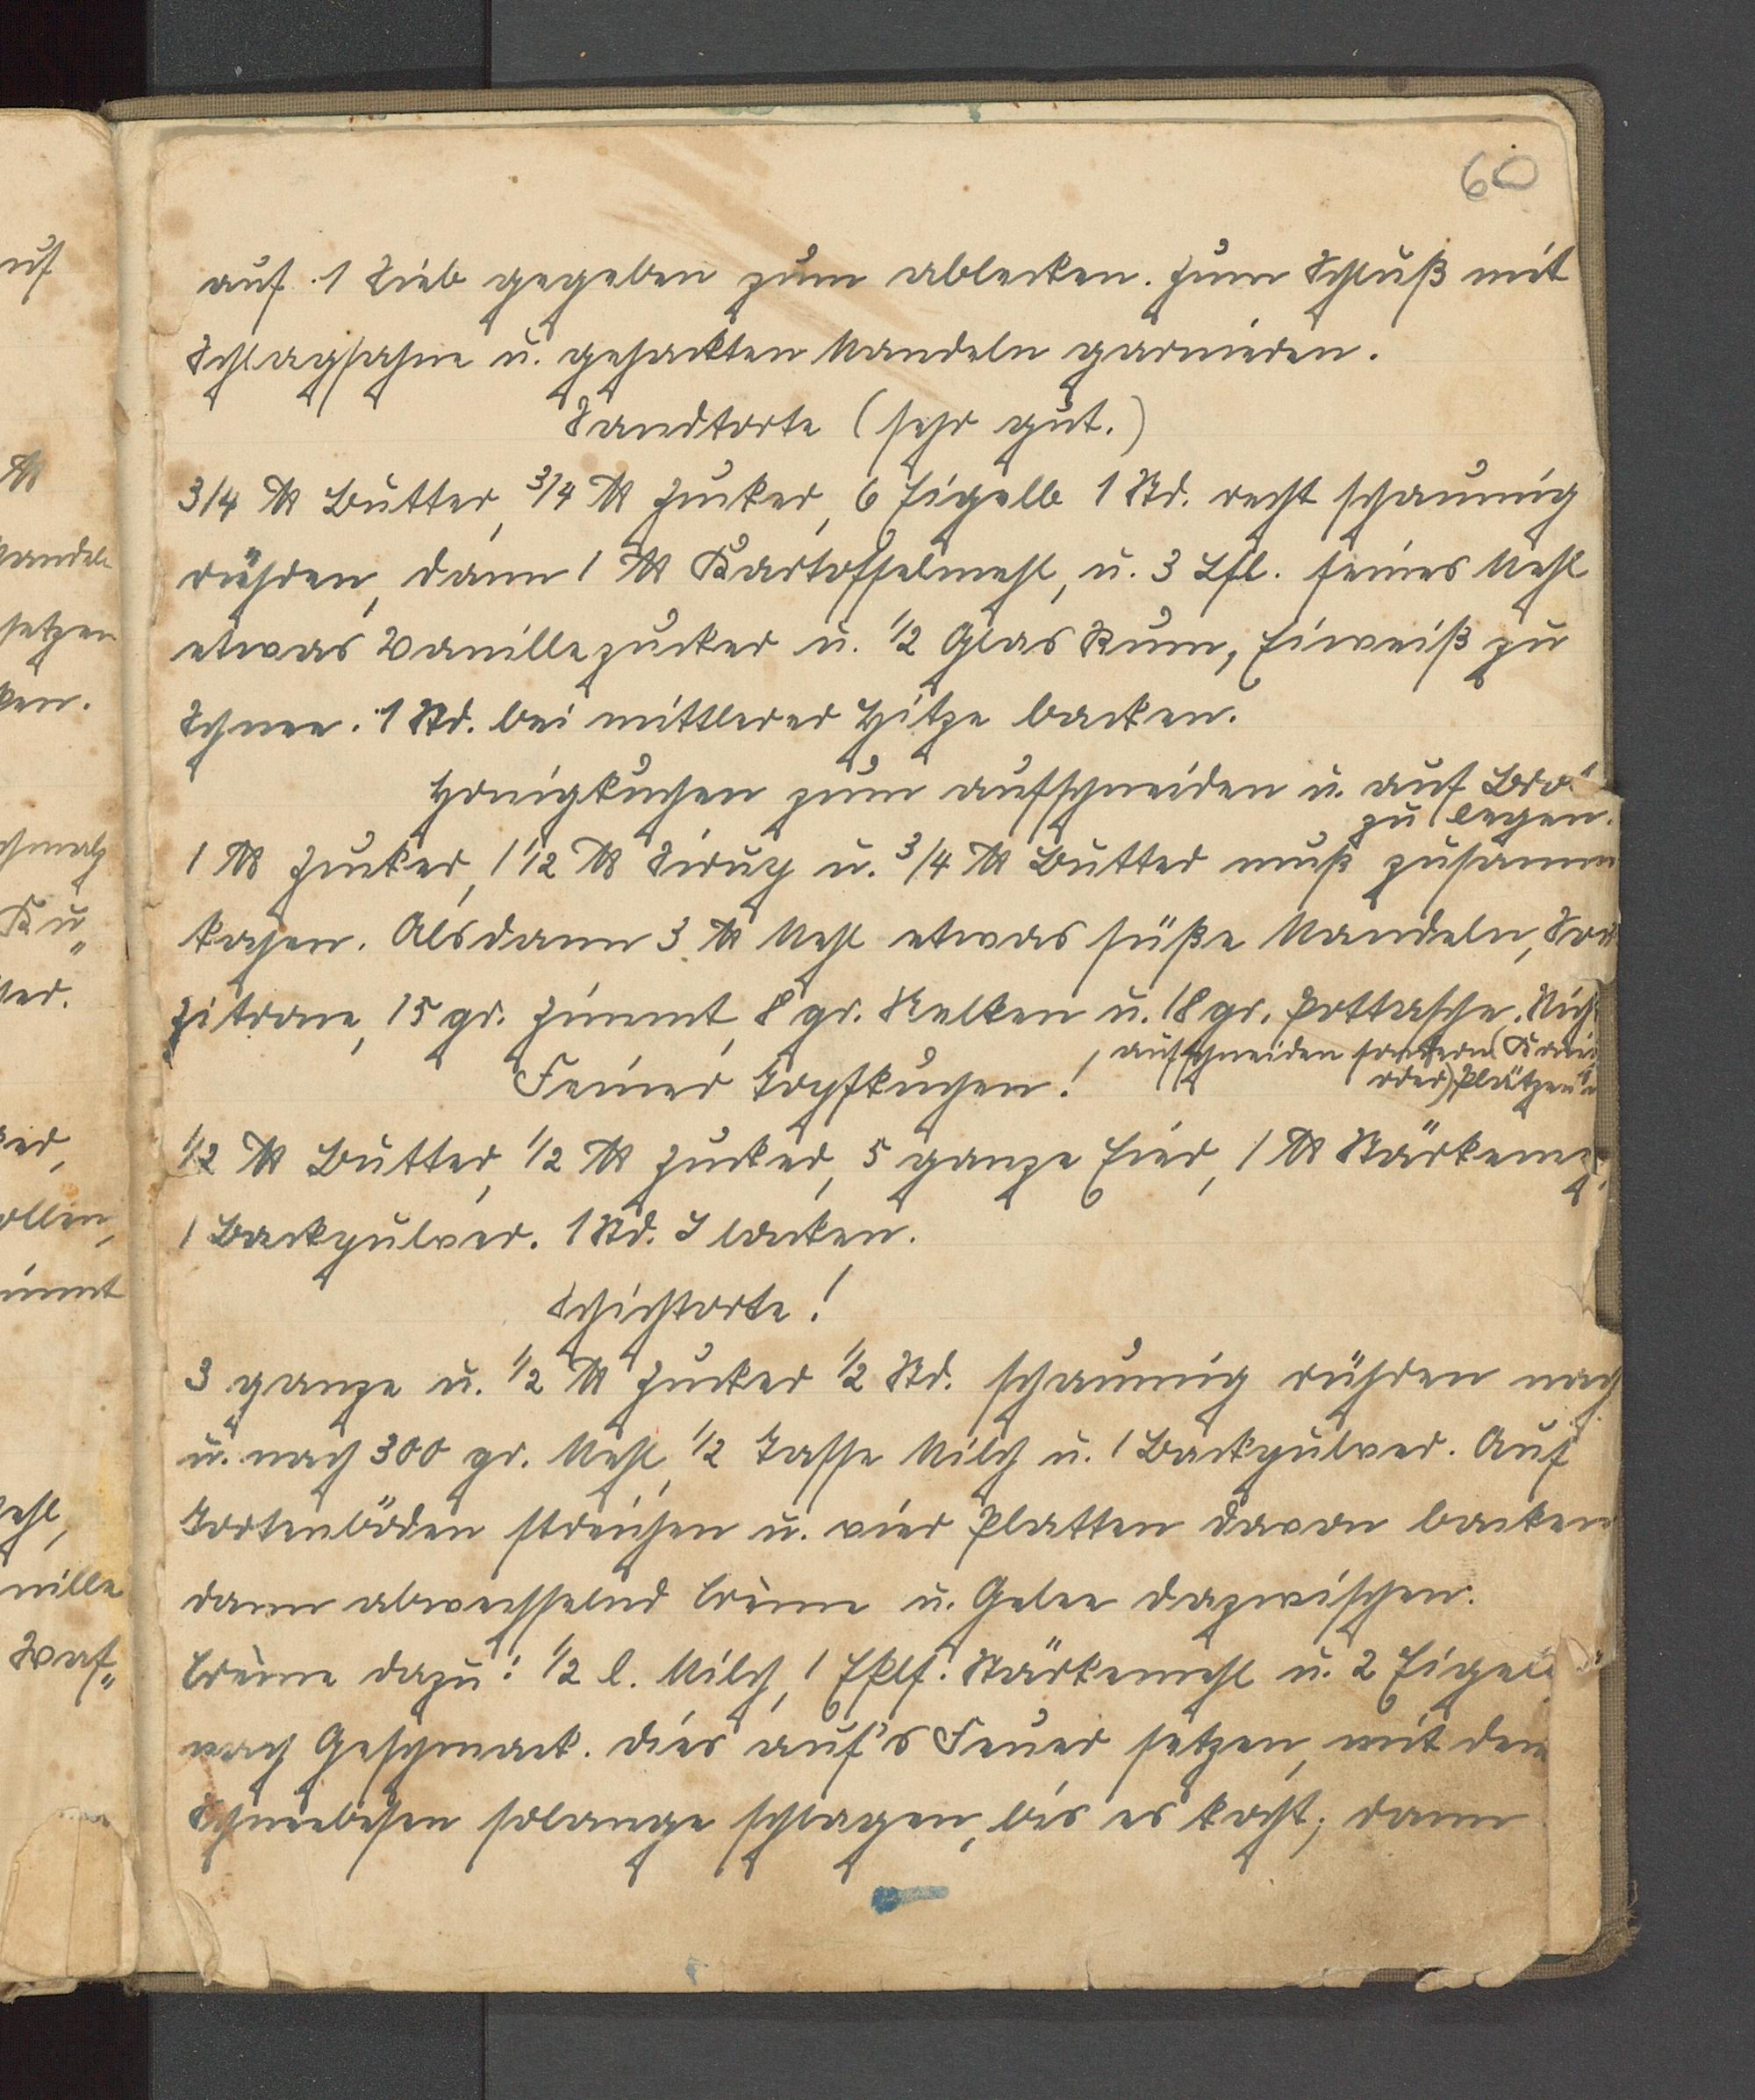 60
auf 1 Sieb gegeben zum ablecken. Zum Schluß mit
Schlagsahne u. gehackten Mandeln garnieren.
Sandtorte (sehr gut.)
3/4 ℔ Butter, 3/4 ℔ Zucker, 6 Eigelb 1 Std. recht schaumig
rühren, dann 1 ℔ Kartoffelmehl, u. 3 Lfl. feines Mehl
etwas Vanillezucker u. 1/2 Glas Rum, Eiweiß zu
Schnee. 1 Std. bei mittlerer Hitze backen.
Honigkuchen zum aufschneiden u. auf Bro
zu legen.
1 ℔ Zucker, 1 1/2 ℔ Sirup u. 3/4 ℔ Butter muß zusamm
kochen. Alsdann 3 ℔ Mehl etwas süße Mandeln,
Zitrone, 15 gr. Zimmt, 8 gr. Nelken u. 18 gr. Pottasche. Nich
aufschneiden sondern
oder) Plätzen
Feiner Topfkuchen!
1/2 ℔ Butter, 1/2 ℔ Zucker, 5 ganze Eier, 1 ℔ Stärkeme
1 Backpulver. 1 Std. backen.
Schichtorte!
3 ganze u. 1/2 ℔ Zucker 1/2 Std. schaumig rühren nach
u. nach 300 gr. Mehl, 1/2 Tasse Milch u. 1 Backpulver. Auf
Tortenböden streichen u. vier Platten davon backen
dann abwechselnd Crème u. Gelee dazwischen.
Crème dazu: 1/2 l. Milch, 1 Eßlf. Stärkemehl u. 2 Eigel
nach Geschmack. Dies auf's Feuer setzen, mit dem
Schneebesen solange schlagen, bis es kocht; dann